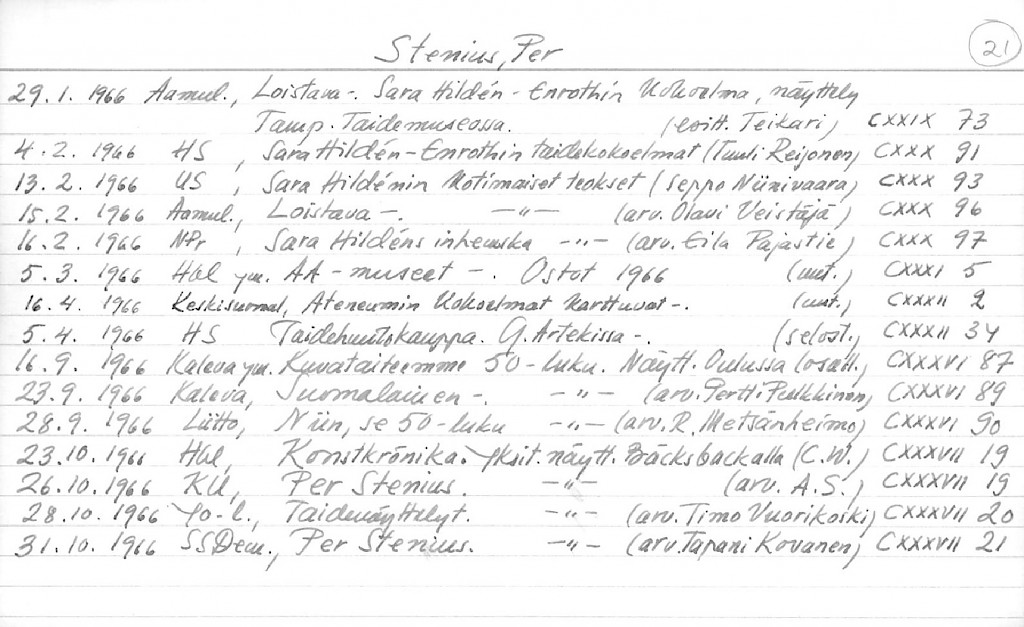 21
Stenius, Per
29.1. 1966 Aamul., Loistava-. Sara Hildén-Enrothin Kokoelma, näyttely
Tamp. Taidemuseossa. (esitt. Teikari) CXXIX 73
4.2. 1966 HS, Sara Hildén-Enrothin taidekokoelmat (Tuuli Reijonen) CXXX 91
13.2. 1966 US, Sara Hildénin Kotimaiset teokset (Seppo Niinivaara) CXXX 93
15.2. 1966 Aamul., Loistava-. -"- (arv. Olavi Veistäjä) CXXX 96
16.2. 1966 NPr, Sara Hildéns inhemska -"- (arv. Eila Pajastie) CXXX 97
5.3. 1966 Hbl ym. ÅA-museet -. Ostot 1966 (uut.) CXXXI 5
16.4. 1966 Keskisuomal, Ateneumin Kokoelmat Karttuvat-. (uut.) CXXXII 2
5.4. 1966 HS Taidehuutokauppa. G. Artekissa-. (selost.) CXXXII 34
16.9. 1966 Kaleva ym. Kuvataiteemme 50-luku. Näytt. Oulussa (osall.) CXXXVI 87
23.9. 1966 Kaleva, Suomalainen-. -"- (arv. Pertti Pulkkinen) CXXXVI 89
28.9. 1966 Liitto, Niin, se 50-luku -"- (arv. R. Metsänheimo) CXXXVI 90
23.10. 1966 Hbl, Konstkrönika. Yksit. näytt. Bäcksbackalla (C.W.) CXXXVII 19
26.10. 1966 KU, Per Stenius. -"- (arv. A.S.) CXXXVII 19
28.10. 1966 Yo-l., Taidenäyttelyt. -"- (arv. Timo Vuorikoski) CXXXVII 20
31.10. 1966 SSDem., Per Stenius. -"- (arv. Tapani Kovanen) CXXXVII 21